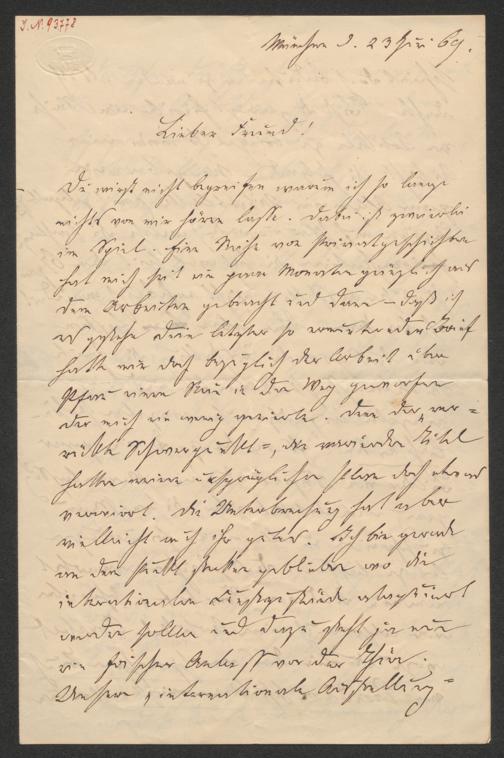 J. N. 93778
München d. 23 Juni 69.
Lieber Freund!
Du wirst nicht begreifen warum ich so lange
nichts von mir hören lasse. Dabei ist zweierlei
im Spiel. Eine Reihe von Privatgeschichten
hat mich seit ein paar Monaten gänzlich aus
dem Arbeiten gebracht und dann – daß ich
es gestehe Dein letzter so Brief
hatte mir doch bezüglich der Arbeit über
einen Stein in den Weg geworfen
der mich ein wenig genirte. Denn der „ver=
rückte Schwerpunkt", der Titel
hatten meine ursprünglichen Pläne doch etwas
verwirrt. Die Unterbrechung hat aber
vielleicht auch ihr gutes. Ich bin gerade
an dem Punkt stecken geblieben wo die
internationalen Kunstzustände
werden sollen und dazu steht ja nun
ein frischer Anlass vor der Thür.
Unsere „internationale Ausstellung"